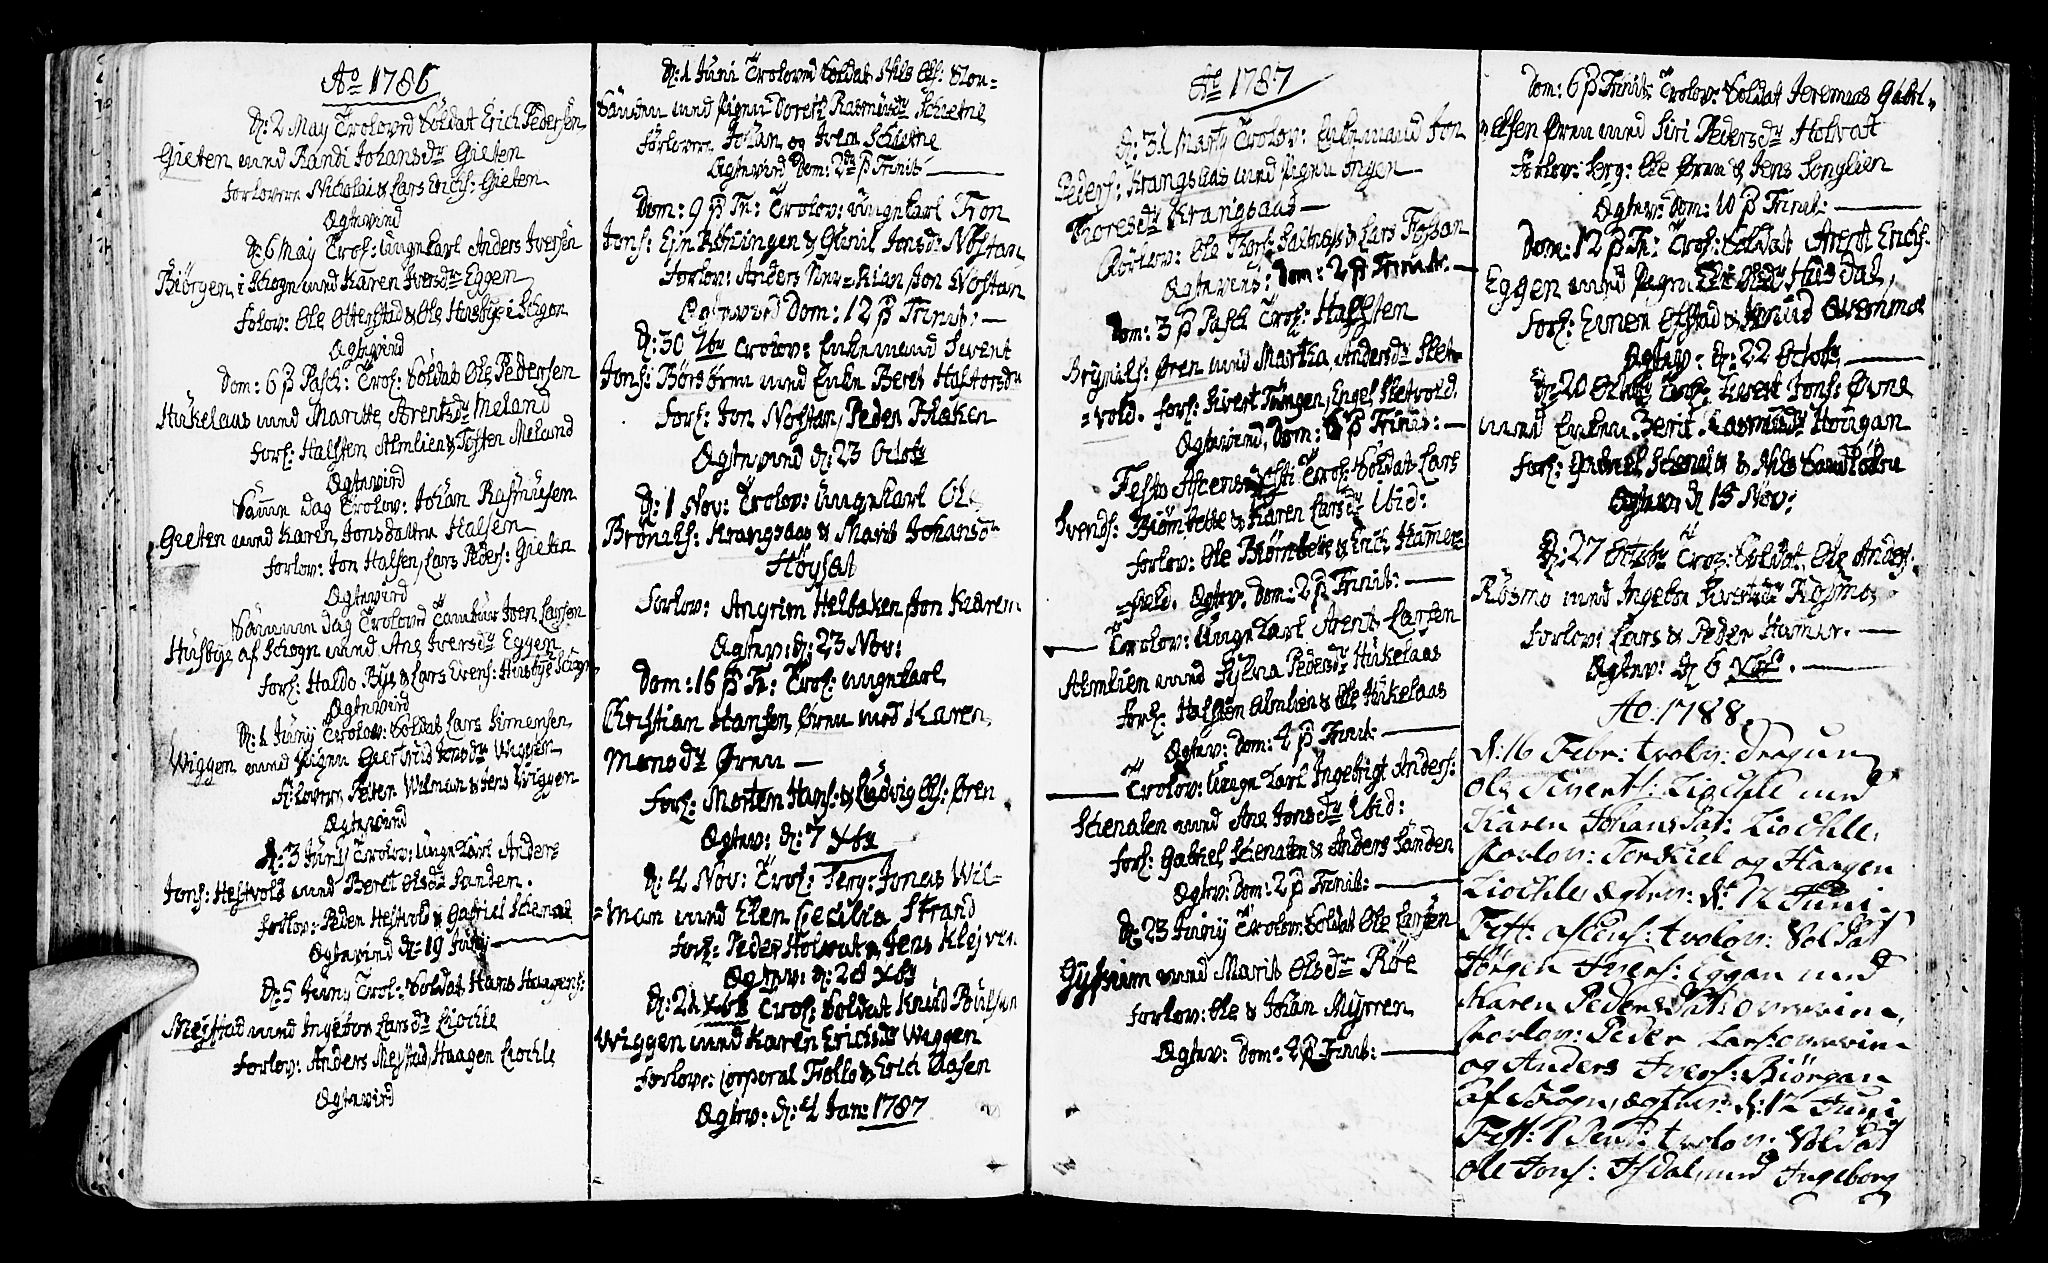 Ao 1786
d: 2 May Trolovd Soldat Erich Pedersen
Gieten med Randi Johansdr Gieten
forlovere Nicholai & Lars Erichs: Gieten
Ægteviid
d: 6 May Trol: ungkarl Anders Iversen
Biörgen i Schogn med Karen Iversdr Eggen
forlov: Ole Otterstad & Ole Husbye i Schogn
Ægteviid
Dom: 6 p Pasch: Trol: Soldat Ole Pedersen
Hukelaas med Maritte Arentsdr Meland
forl: Halsten Almlien & Tosten Meland
Ægteviid
Samme dag Trolov: Johan Rasmusen
Gieten med Karen Jonsdatter Halsem
forlov: Jon Halsen, Lars Peders: Gieten
Ægteviid
Samme dag Trolovd Tambur Iver Larsen
Husbye af Schogn med Ane Iversdr Eggen
forl: Haldo Bys & Lars Evens: Husbye Schogn
Ægteviid
d: 1 Juny Trolov: Soldat Lars Simensen
Wiggen med Pigen Giertrud Jensdr Wiggen
forlovere Peter Wilman & Jens Wiggen
Ægteviid
d: 3 Juny Trolov: Ungkarl Anders
Jons: Hestvold med Beret Olsdr Sanden.
forlov: Peder Hestvold & Gabriel Schenal
Ægteviid d: 19 July
d: 5 Juny Trol: Soldat Hans Haagens:
Meystad med Ingebor Larsdr Liochle
forlov: Anders Meystad, Haagen Liochle
Ægteviid
d: 1 Juni Trolovd Soldat Nils Ols:
med Pigen Doreth Rasmusdr Schietne
forlovere Johan og Iver Schietne
Ægteviid Dom: 2 p Trinit
Dom: 9 p Tr: Trolov: ungkarl Tron
Jons: & Gunil Jonsdr Nostan
forlov: Anders Jon Nostan
Ægteviid Dom: 12 p Trinit:
d: 30 7br Trolov: Enkemand Sivert
Jons: Börsören med Enke Beret Halforsdr
forl: Jon Nostan, Peder Phaken
Ægteviid d: 23 Octob
d: 1 Nov: Trolov: ungkarl Ole
Brönels: Krangsaas & Marit Johansdr
Höysat
forlov: Angrim Helbaken Jon Klarem
Ægtev: d: 23 Nov:
Dom: 16 p Tr: Trol: ungkarl
Christian Hansen, Ören med Karen
Monsdr Ören
forl: Morten Hans: & Ludvig Ols: Ören
Ægtev: d: 7 Xbr
d: 4 Nov: Trol: Jonas Wil-
=man med Elen Cecilia Strand
forl: Peder Jens Klejven
Ægtev: d: 28 Xbr
d: 21 Xbr Trol: Soldat Knud Poulsen
Wiggen med Karen Erichsdr Wiggen
forlov: Corporal Follo & Erich Aasen
Ægtev: d: 4 Jan: 1787
Ao 1787
d: 31 Marty Trolov: Enkemand Jon
Peders: Krangsaas med Pigen Ingen
Thoresdr Krangsaas
forlov: Ole Thors: Saltnes & Lars Fossan
Ægteviid: Dom: 2 p Trinit:
Dom: 3 p Pasch Trol: Halsten
Brynils: Ören med Martha Andersdr Slet=
=vold. forl: Sivert Tungen, Engel Sletvold.
Ægteviid, Dom: 6 p Trinit:
Festo Ascens: Trol: Soldat Lars
Svends: Biömbete & Karen Larsdr Ibid:
forlov: Ole & Erich Hamer=
=field. Ægtev. Dom: 2 p Trinit:
Trolov: Ungkarl Arent Larsen
Almlien med Sylvia Pedersdr Hukelaas
forl: Halsten Almlien & Ole Hukelaas
Ægtev: Dom: 4 p Trinit:
Trolov: Ungkarl Ingebrigt Anders:
Schenalen med Ane Jonsdr Ibid:
forl: Gabriel Schenalen & Anders Sanden
Ægtev: Dom: 2 p Trinit:
d: 23 Juny Trolov: Soldat Ole Larsen
Gylseim med Marit Olsdr Röe
forlov: Ole & Johan Myrren
Ægtev: Dom: 4 p Trinit:
Dom: 6 p Trinit: Trolov: Soldat Jeremias Gabri=
=elsen Ören med Siri Pedersdr Holvatt
forlov: Ole Ören & Jens
Ægtev: Dom: 10 p Trinit:
Dom: 12 p Tr: Trol: Soldat Arent Erichs:
Eggen med Pigen Olsdr Husdal,
forl: Einer Efstad & Knud Qvenmoe
Ægtev: d: 22 Octob
d: 20 Octob Trol: Sivert Jons: Övne
med Enken Berit Rasmusdr Hougan
forl: Gabriel & Nils
Ægtev d 15 Nov:
d: 27 Octobr Trol: Soldat Ole Anders:
Rösmo med Ingebor Sivertsdr Rosmoe
forlov: Lars & Peder Hamer.
Ægtev: d 6 Xbr.
Ao: 1788
d: 16 Febr: trolov: dragun
Ole Siverts: Liochle med
Karen Johansdat: Liochle,
forlov: Torkiel og Haagen
Liochle ægtev: d: 12 Juni.
Fest: ascens: trolov: Soldat
Jörgen Ivers: Eggan med
Karen Pedersdat:
forlov: Peder Lars:
og Anders Ivers: Biörgan
af Schogn, ægtev: d: 12 Juni
Fest: Pent: trolov: Soldat
Ole Jons: Isdal med Ingeborg